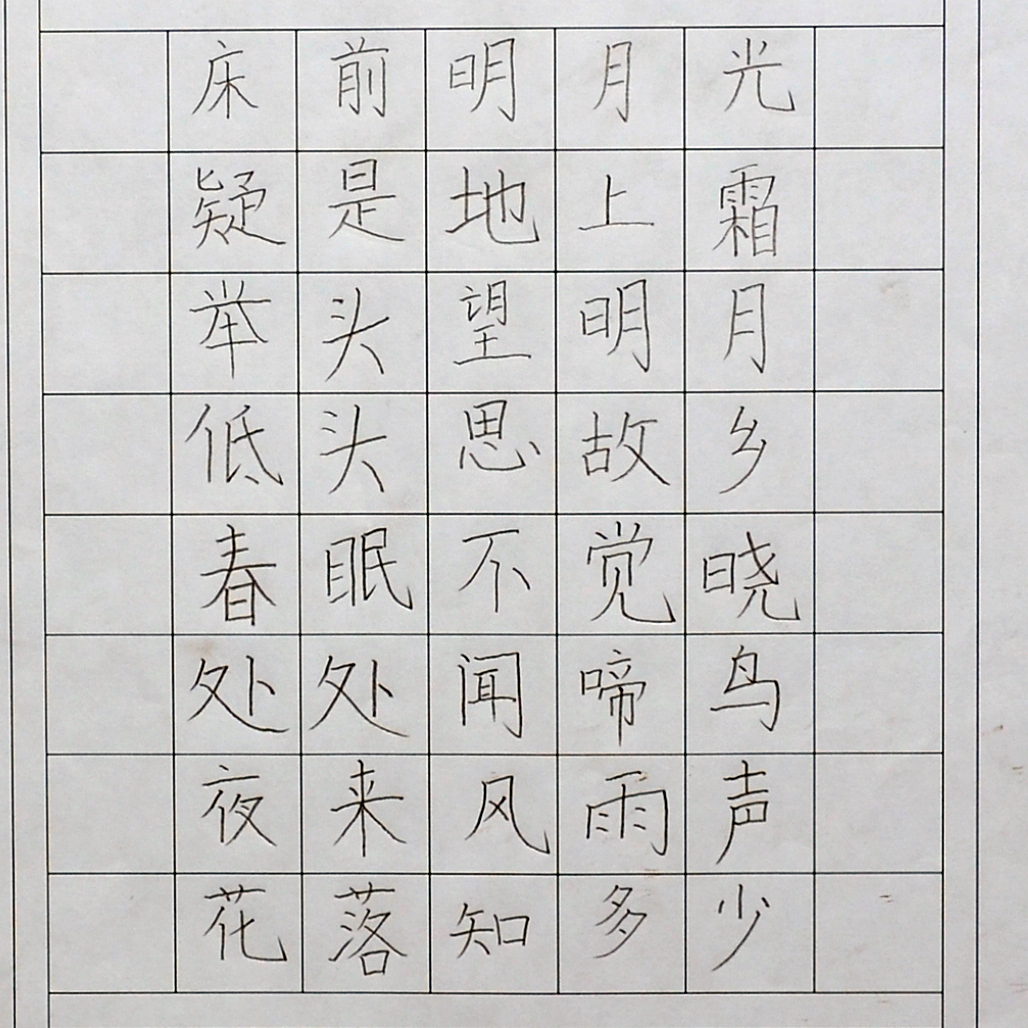 床前明月光
疑是地上霜
举头望明月
低头思故乡
春眠不觉晓
处处闻啼鸟
夜来风雨声
花落知多少